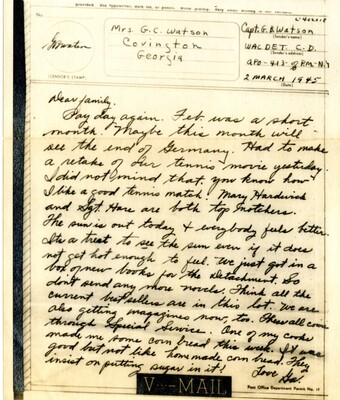 No.
Mrs. G.C. Watson
Covington
Georgia
(CENSOR'S STAMP)
Capt. G.B. Watson
(Sender's name)
WAC DET. C.D.
(Sender's address)
APO-413- % P.M.-N.Y
2 MARCH 1945
(Date)
Dear family,
Pay day again. Feb. was a short
month. Maybe this month will
see the end of Germany. Had to make
a retake of our tennis movie yesterday.
I did not mind that. you know how
I like a good tennis match! Mary Hardwick
and Sgt. Hare are both top notchers.
The sun is out today & everybody feels better.
Its a treat to see the sun even if it does
not get hot enough to feel. We just got in a
box of new books for the Detachment. So
don't send any more novels. I think all the
current bestsellers are in this lot. We are
also getting magazines now, too. They all come
through Special Service. One of my cooks
made me some corn bread this week. It was
good but not like home made corn bread. They
insist on putting sugar in it!
Love
V-MAIL
Post Office Department Permit No. 17